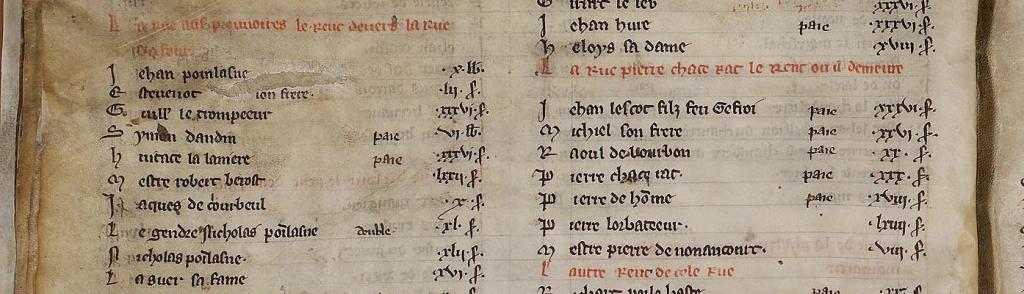 L a rue aus prouuoires le renc deuers la rue
J ehan poilasne .x. lb.
E steuenot son frere. .lii. s.
G uill' le trompeeur .xxxvi. s.
S ymon dandin paie .vi. lb.
h uitace la lamiere paie .xxxvi. s.
M estre robert .lxxii. s.
J aques de corbeul .x. s.
L e gendre Nicholas poilasne double .xl. s.
N icholas poilasne. .xlii. s.
L a guer sa fame .xvi. s.
xxxvi. s.
J ehan hure paie .xxxvi. s.
h eloys sa dame .xviii. s.
L a rue pierre chace rat le renc ou il demeure
J ehan lescot filz feu Gefroi paie .xxxvi. s.
M ichiel son frere paie .xxvi. s.
R aoul de bourbon paie .xx. s.
P ierre chace rat. paie .xxx. s.
P ierre de home paie .xviii. s.
P ierre lorbateeur. .lxiiii. s.
M estre pierre de nonancourt. .viii. s.
L autre renc de cele rue
R paie